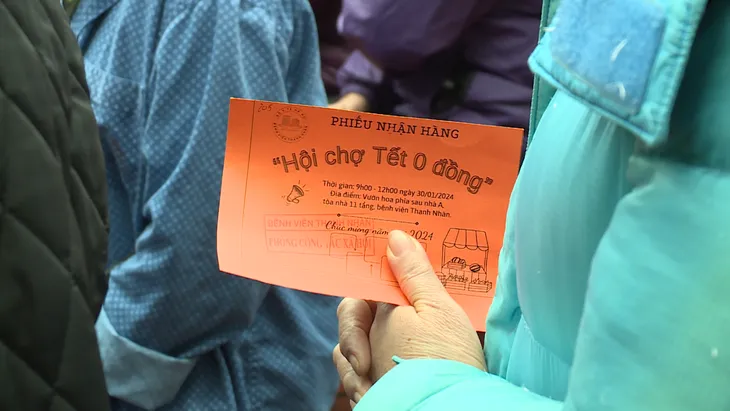 PHIẾU NHẬN HÀNG
"Hội chợ Tết 0 đồng"
Thời gian: 9h00 - 12h00 ngày 30/01/2024
Địa điểm: Vườn hoa phía sau nhà A,
tòa nhà 11 tầng, bệnh viện Thanh Nhàn.
Chúc mừng năm 2024
BỆNH VIỆN THANH NHÀN
PHÒNG CÔNG TÁC XÃ HỘI